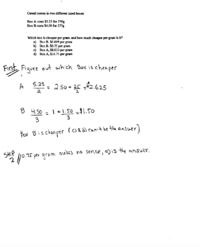 Cereal comes in two different sized boxes
Box A costs $5.25 for 350g
Box B costs $4.50 for 375g
Which box is cheaper per gram and how much cheaper per gram is it?
a) Box B, $0.003 per gram
b) Box B, $0.75 per gram
c) Box A, per gram
d) Box A, per gram
First, Figure out which Box is cheaper
A 5.25 = 2.50 + .25 = $2.625
2 2
B 4.50 = 1 + 1.50 = $1.50
3 3
Box B is cheaper (c) & d) can't be the answer)
Step 2 0.75 per gram makes no sense, a) is the answer.